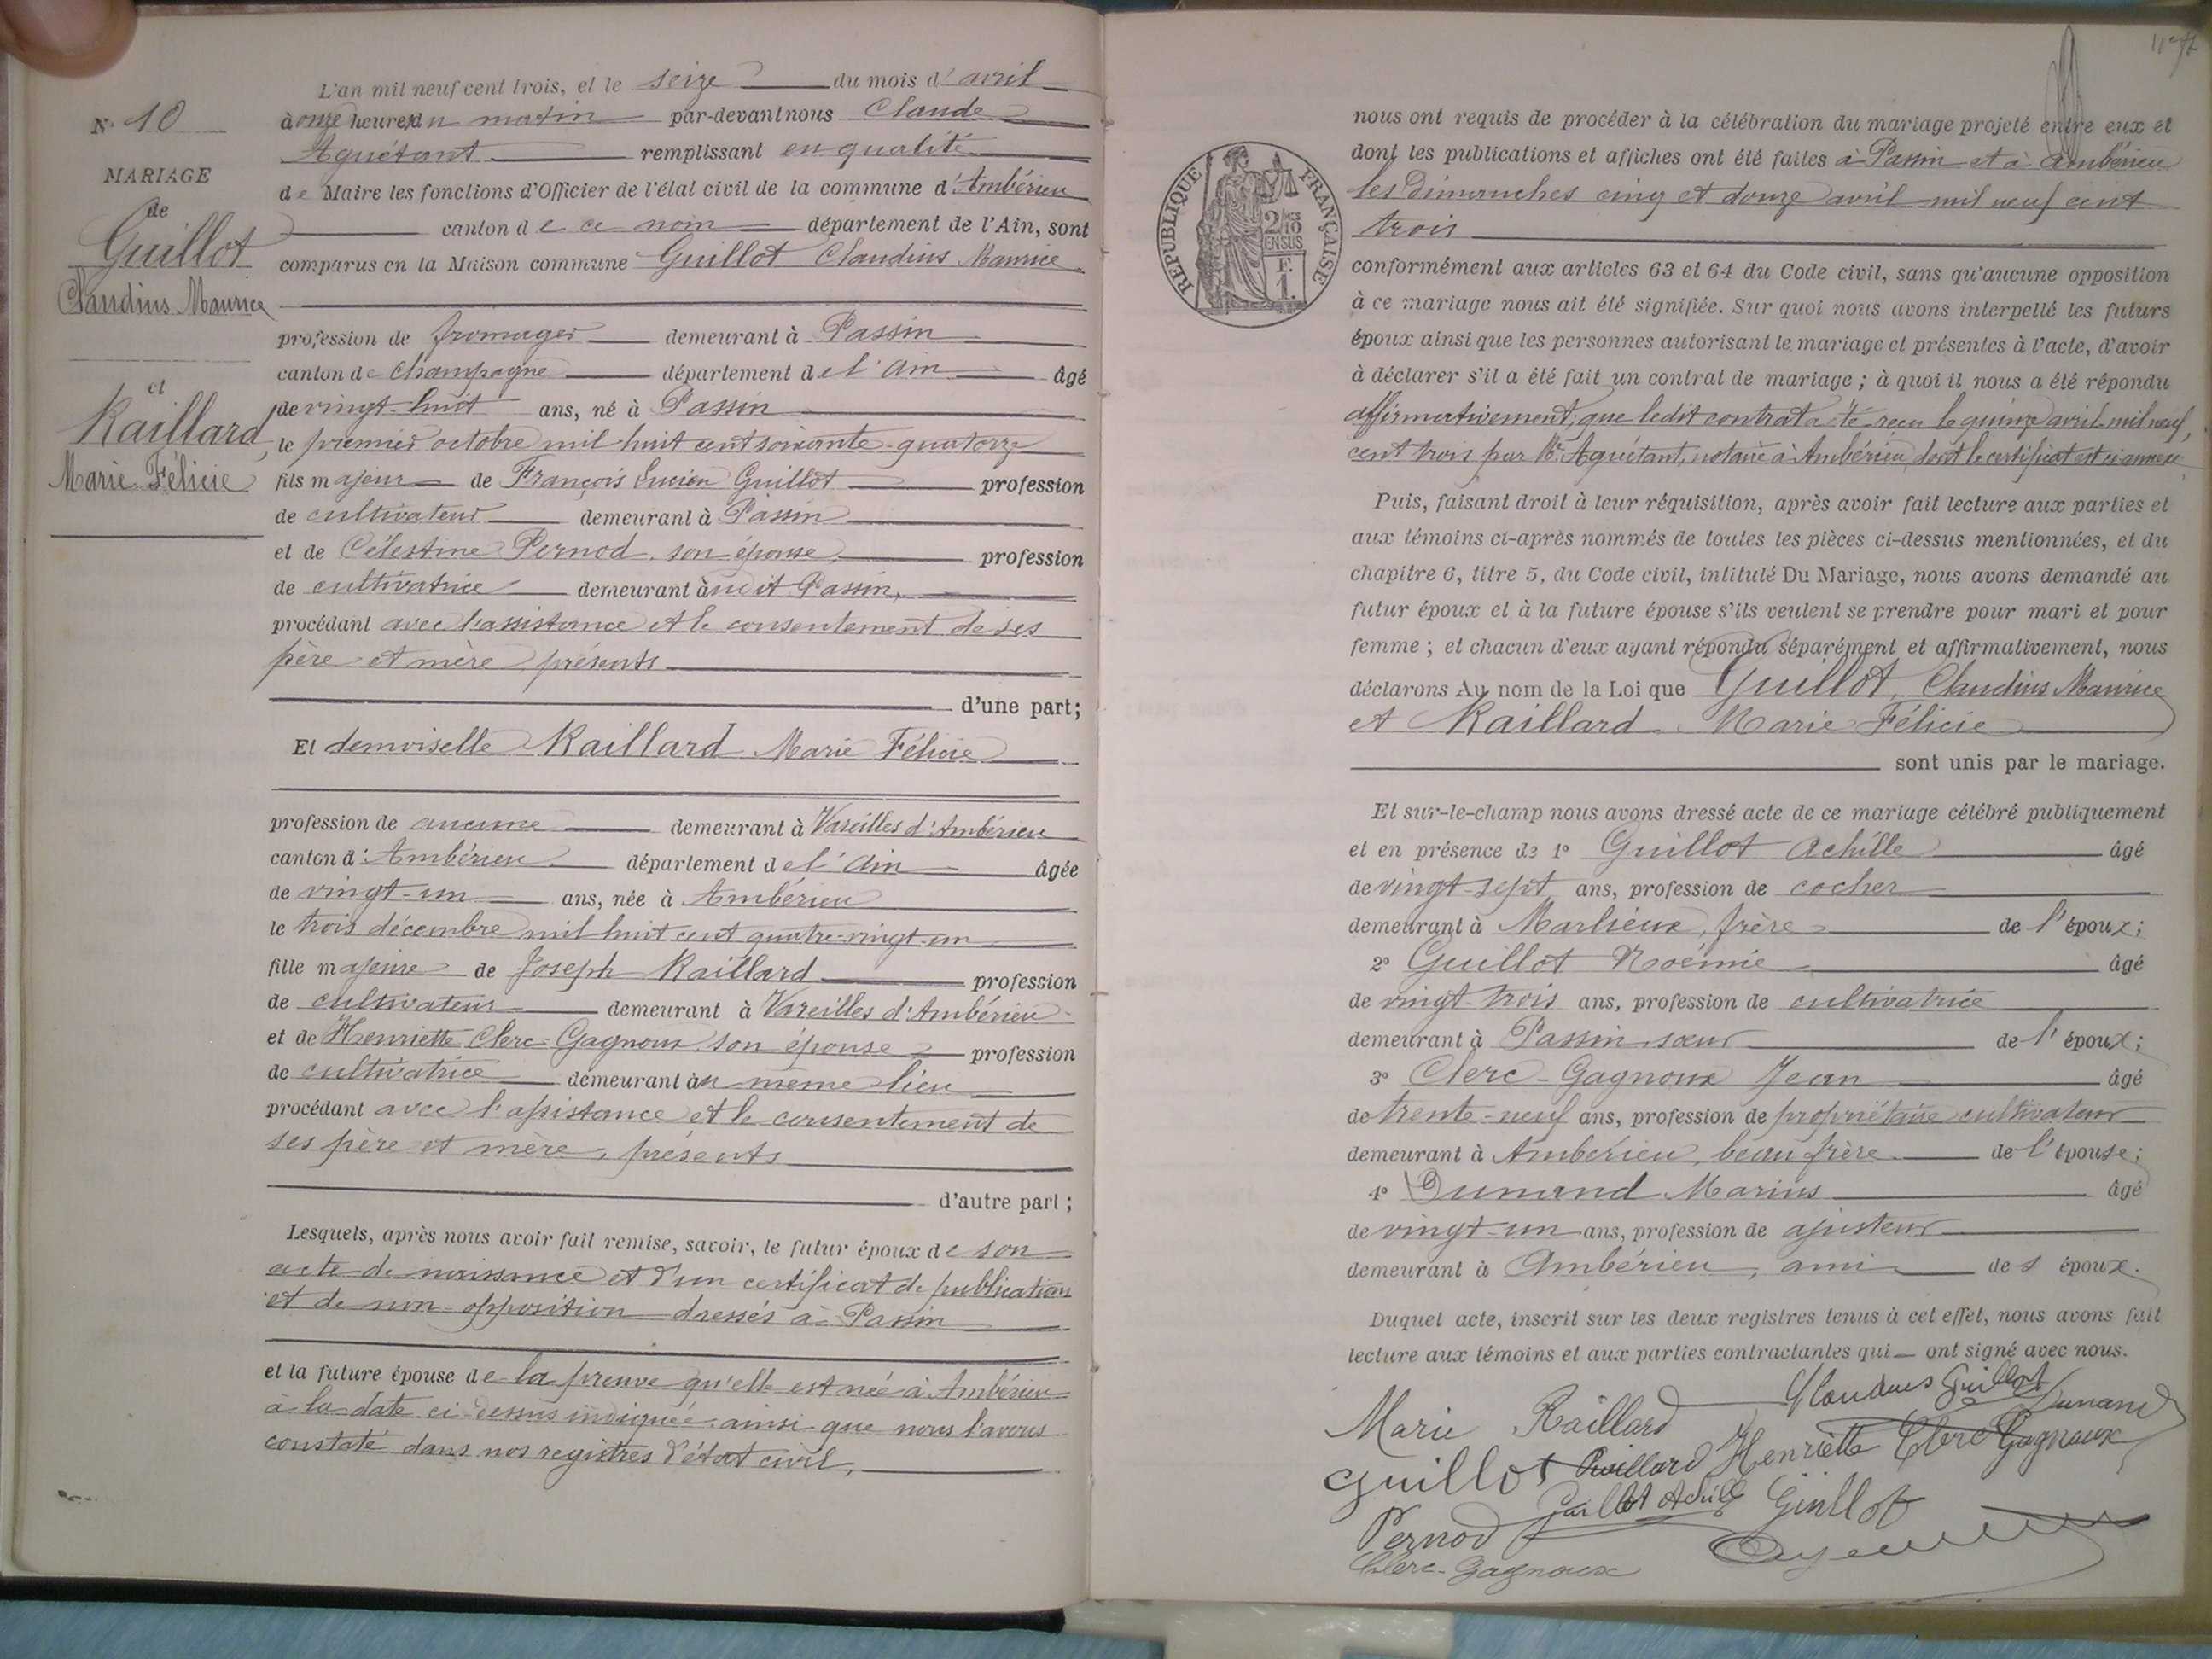 N° 10
MARIAGE
de
Guillot
Claudius Maurice
et
Raillard,
Marie Félicie
L'an mil neuf cent trois, et le seize du mois d'avril
à onze heures du matin par-devant nous Claude
Aguétant remplissant en qualité
de Maire les fonctions d'Officier de l'état civil de la commune d'Ambérieu
canton de ce nom département de l'Ain, sont
comparus en la Maison commune Guillot Claudius Maurice
profession de fromager demeurant à Passin
canton de Champagne département de l'Ain âgé
de vingt-huit ans, né à Passin
le premier octobre mil huit cent soixante-quatorze
fils majeur de François Lucien Guillot profession
de cultivateur demeurant à Passin
et de Célestine Pernod, son épouse, profession
de cultivatrice demeurant audit Passin,
procédant avec l'assistance et le consentement de ses
père et mère, présents
d'une part;
Et demoiselle Raillard Marie Félicie
profession de aucune demeurant à Vareilles d'Ambérieu
canton d'Ambérieu département de l'Ain âgée
de vingt-un ans, née à Ambérieu
le trois décembre mil huit cent quatre-vingt-un
fille majeure de Joseph Raillard profession
de cultivateur demeurant à Vareilles d'Ambérieu
et de Henriette Clerc-Gagnoux son épouse profession
de cultivatrice demeurant au même lieu
procédant avec l'assistance et le consentement de
ses père et mère, présents
d'autre part;
Lesquels, après nous avoir fait remise, savoir, le futur époux de son
acte de naissance et d'un certificat de publication
et de non-opposition dressés à Passin
et la future épouse de la preuve qu'elle est née à Ambérieu
à la date ci-dessus indiquée ainsi que nous l'avons
constaté dans nos registres d'état civil,
nous ont requis de procéder à la célébration du mariage projeté entre eux et
dont les publications et affiches ont été faites à Passin et à Ambérieu
les Dimanches cinq et douze avril mil neuf cent
trois
RÉPUBLIQUE FRANÇAISE
2/10 EN SUS
F. 1.
conformément aux articles 63 et 64 du Code civil, sans qu'aucune opposition
à ce mariage nous ait été signifiée. Sur quoi nous avons interpellé les futurs
époux ainsi que les personnes autorisant le mariage et présentes à l'acte, d'avoir
à déclarer s'il a été fait un contrat de mariage; à quoi il nous a été répondu
affirmativement; que ledit contrat a été reçu le quinze avril mil neuf
cent trois par Me Aguétant, notaire à Ambérieu dont le certificat est ci-annexé
Puis, faisant droit à leur réquisition, après avoir fait lecture aux parties et
aux témoins ci-après nommés de toutes les pièces ci-dessus mentionnées, et du
chapitre 6, titre 5, du Code civil, intitulé Du Mariage, nous avons demandé au
futur époux et à la future épouse s'ils veulent se prendre pour mari et pour
femme; et chacun d'eux ayant répondu séparément et affirmativement, nous
déclarons Au nom de la Loi que Guillot, Claudius Maurice
et Raillard Marie Félicie
sont unis par le mariage.
Et sur-le-champ nous avons dressé acte de ce mariage célébré publiquement
et en présence de 1° Guillot Achille âgé
de vingt-sept ans, profession de cocher
demeurant à Marlieux, frère de l'époux;
2° Guillot Noémie âgé
de vingt-trois ans, profession de cultivatrice
demeurant à Passin, sœur de l'époux;
3° Clerc-Gagnoux Jean âgé
de trente-neuf ans, profession de propriétaire cultivateur
demeurant à Ambérieu, beau frère de l'épouse;
4° Dunand Marius âgé
de vingt-un ans, profession de ajusteur
demeurant à Ambérieu, ami des époux.
Duquel acte, inscrit sur les deux registres tenus à cet effet, nous avons fait
lecture aux témoins et aux parties contractantes qui ont signé avec nous.
Marie Raillard Claudius Guillot Dunand
Guillot Raillard Henriette Clerc Gagnoux
Pernod Guillot Achille Guillot
Clerc-Gagnoux